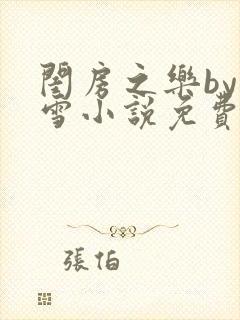 閨房之樂by
雪小說免費
張怕